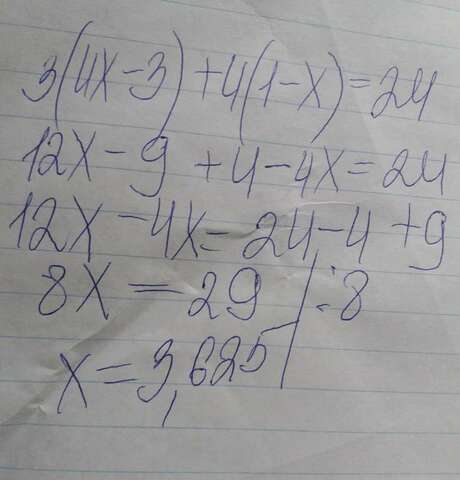 3(4x-3)+4(1-x)=24
12x-9+4-4x=24
12x-4x=24-4+9
8x=29 |:8
x=3,625